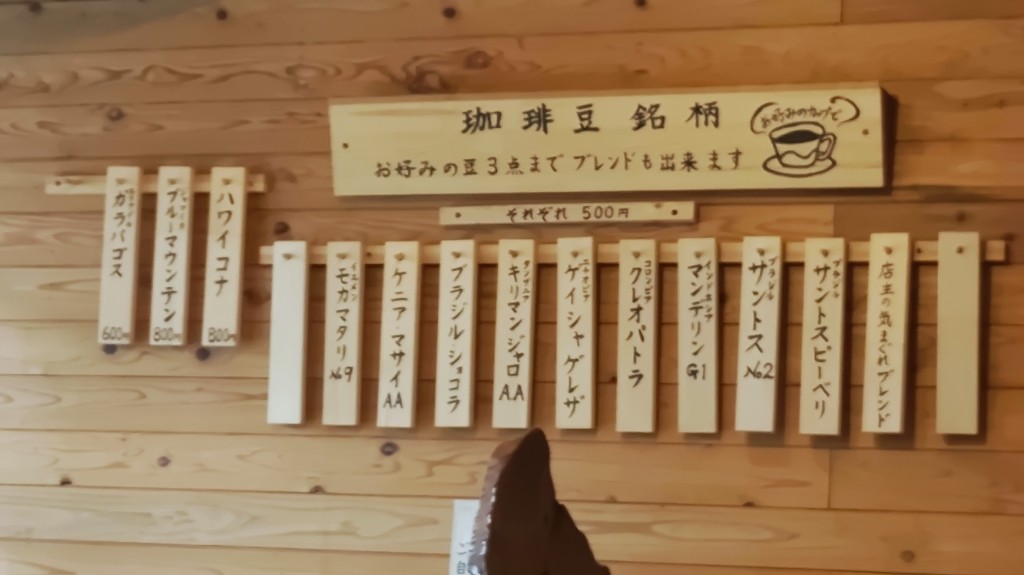 珈琲豆銘柄
お好みの豆3点までブレンドも出来ます
お好みのカップで
それぞれ 500円
ハワイコナ
800円
ブルーマウンテン
800円
ガラパゴス
600円
店主の気まぐれブレンド
ブラジル
サントスピーベリ
ブラジル
サントス No.2
インドネシア
マンデリン G1
コロンビア
クレオパトラ
エチオピア
ゲイシャゲレザ
タンザニア
キリマンジャロ AA
ブラジルショコラ
ケニア・マサイ AA
イエメン
モカマタリ No9